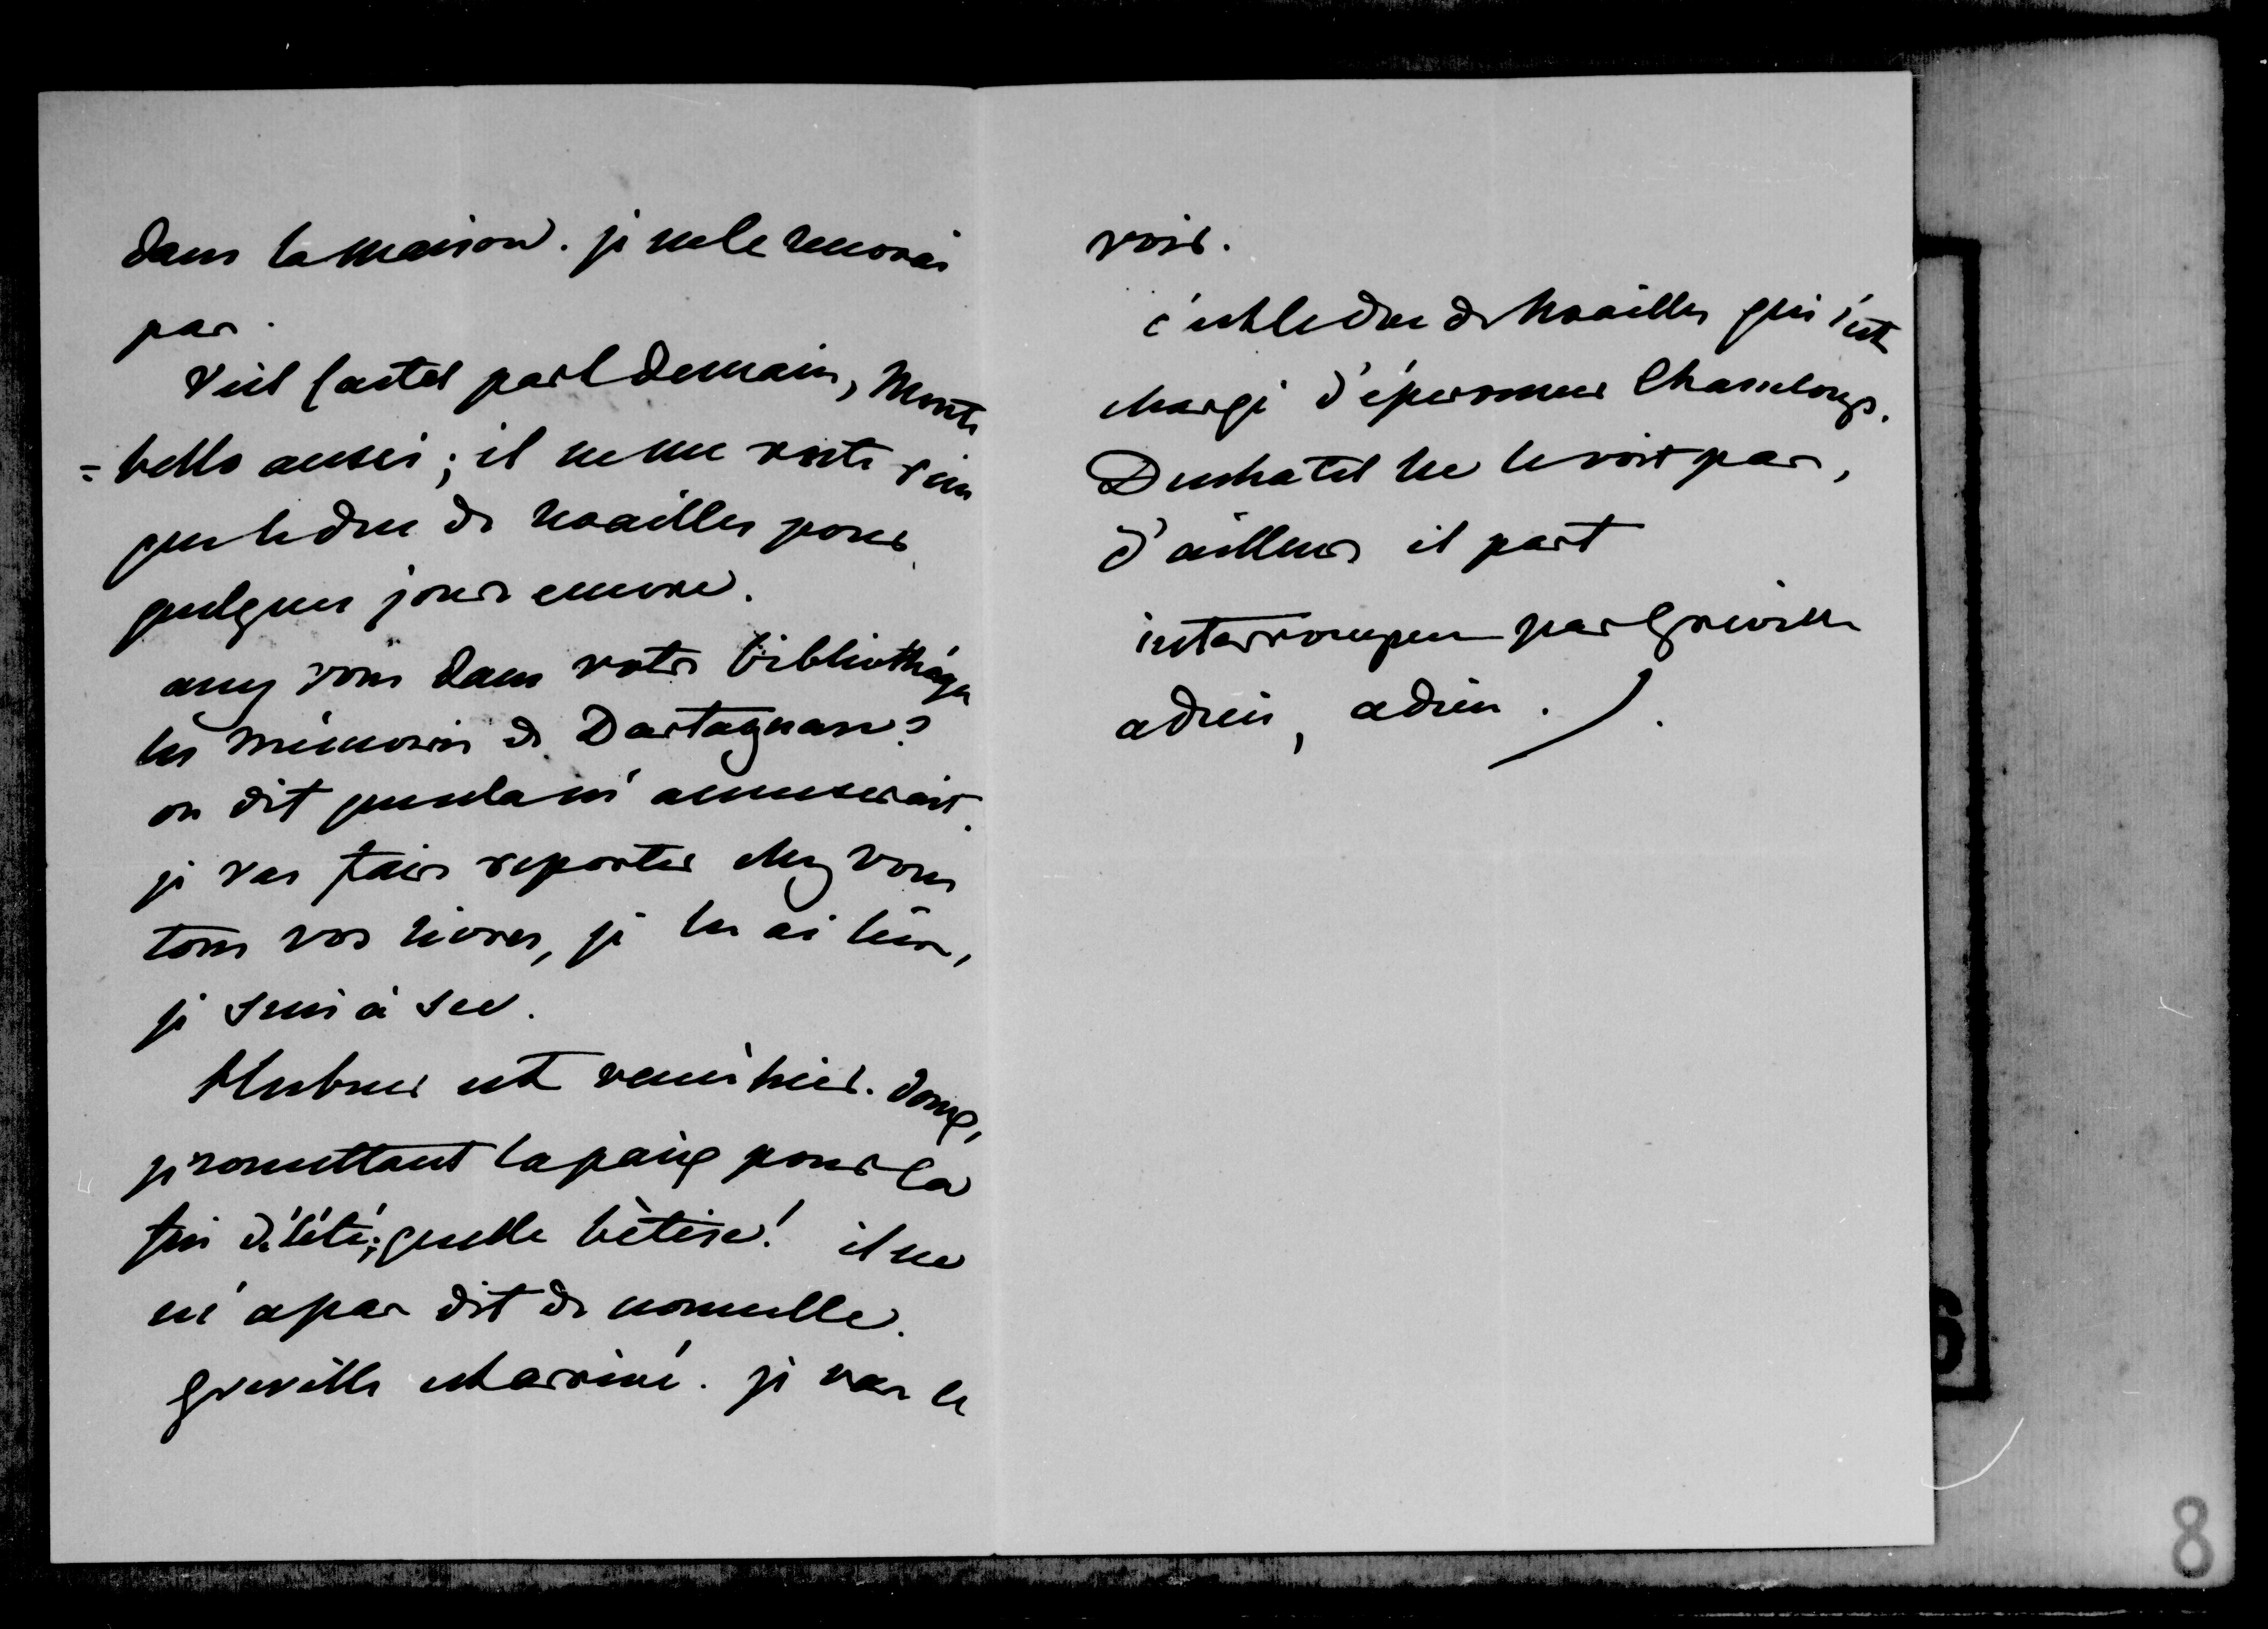 dans la maison. je ne le renvoie
pas.
Viel Castel part demain, Monte
=bello aussi ; il ne me reste rien
que le duc de Noailles pour
quelques jours encore.
avez vous dans votre bibliothèque
les mémoires de Dartagnan ?
on dit que cela m'amuserait.
je vas faire reporter chez vous
tous vos livres, je les ai lus,
je suis à sec.
Hubner est venu hier. doux,
promettant la paix pour la
fin d'été ; quelle bètise ! il ne
m'a pas dit de nouvelle.
Greville est arrivé. je vas le
voir.
c'est le duc de Noailles qui s'est
chargé d'éperonner Chasseloup.
Duchatel ne le voit pas,
d'ailleurs il part
interrompue par Greville
adieu, adieu.
8